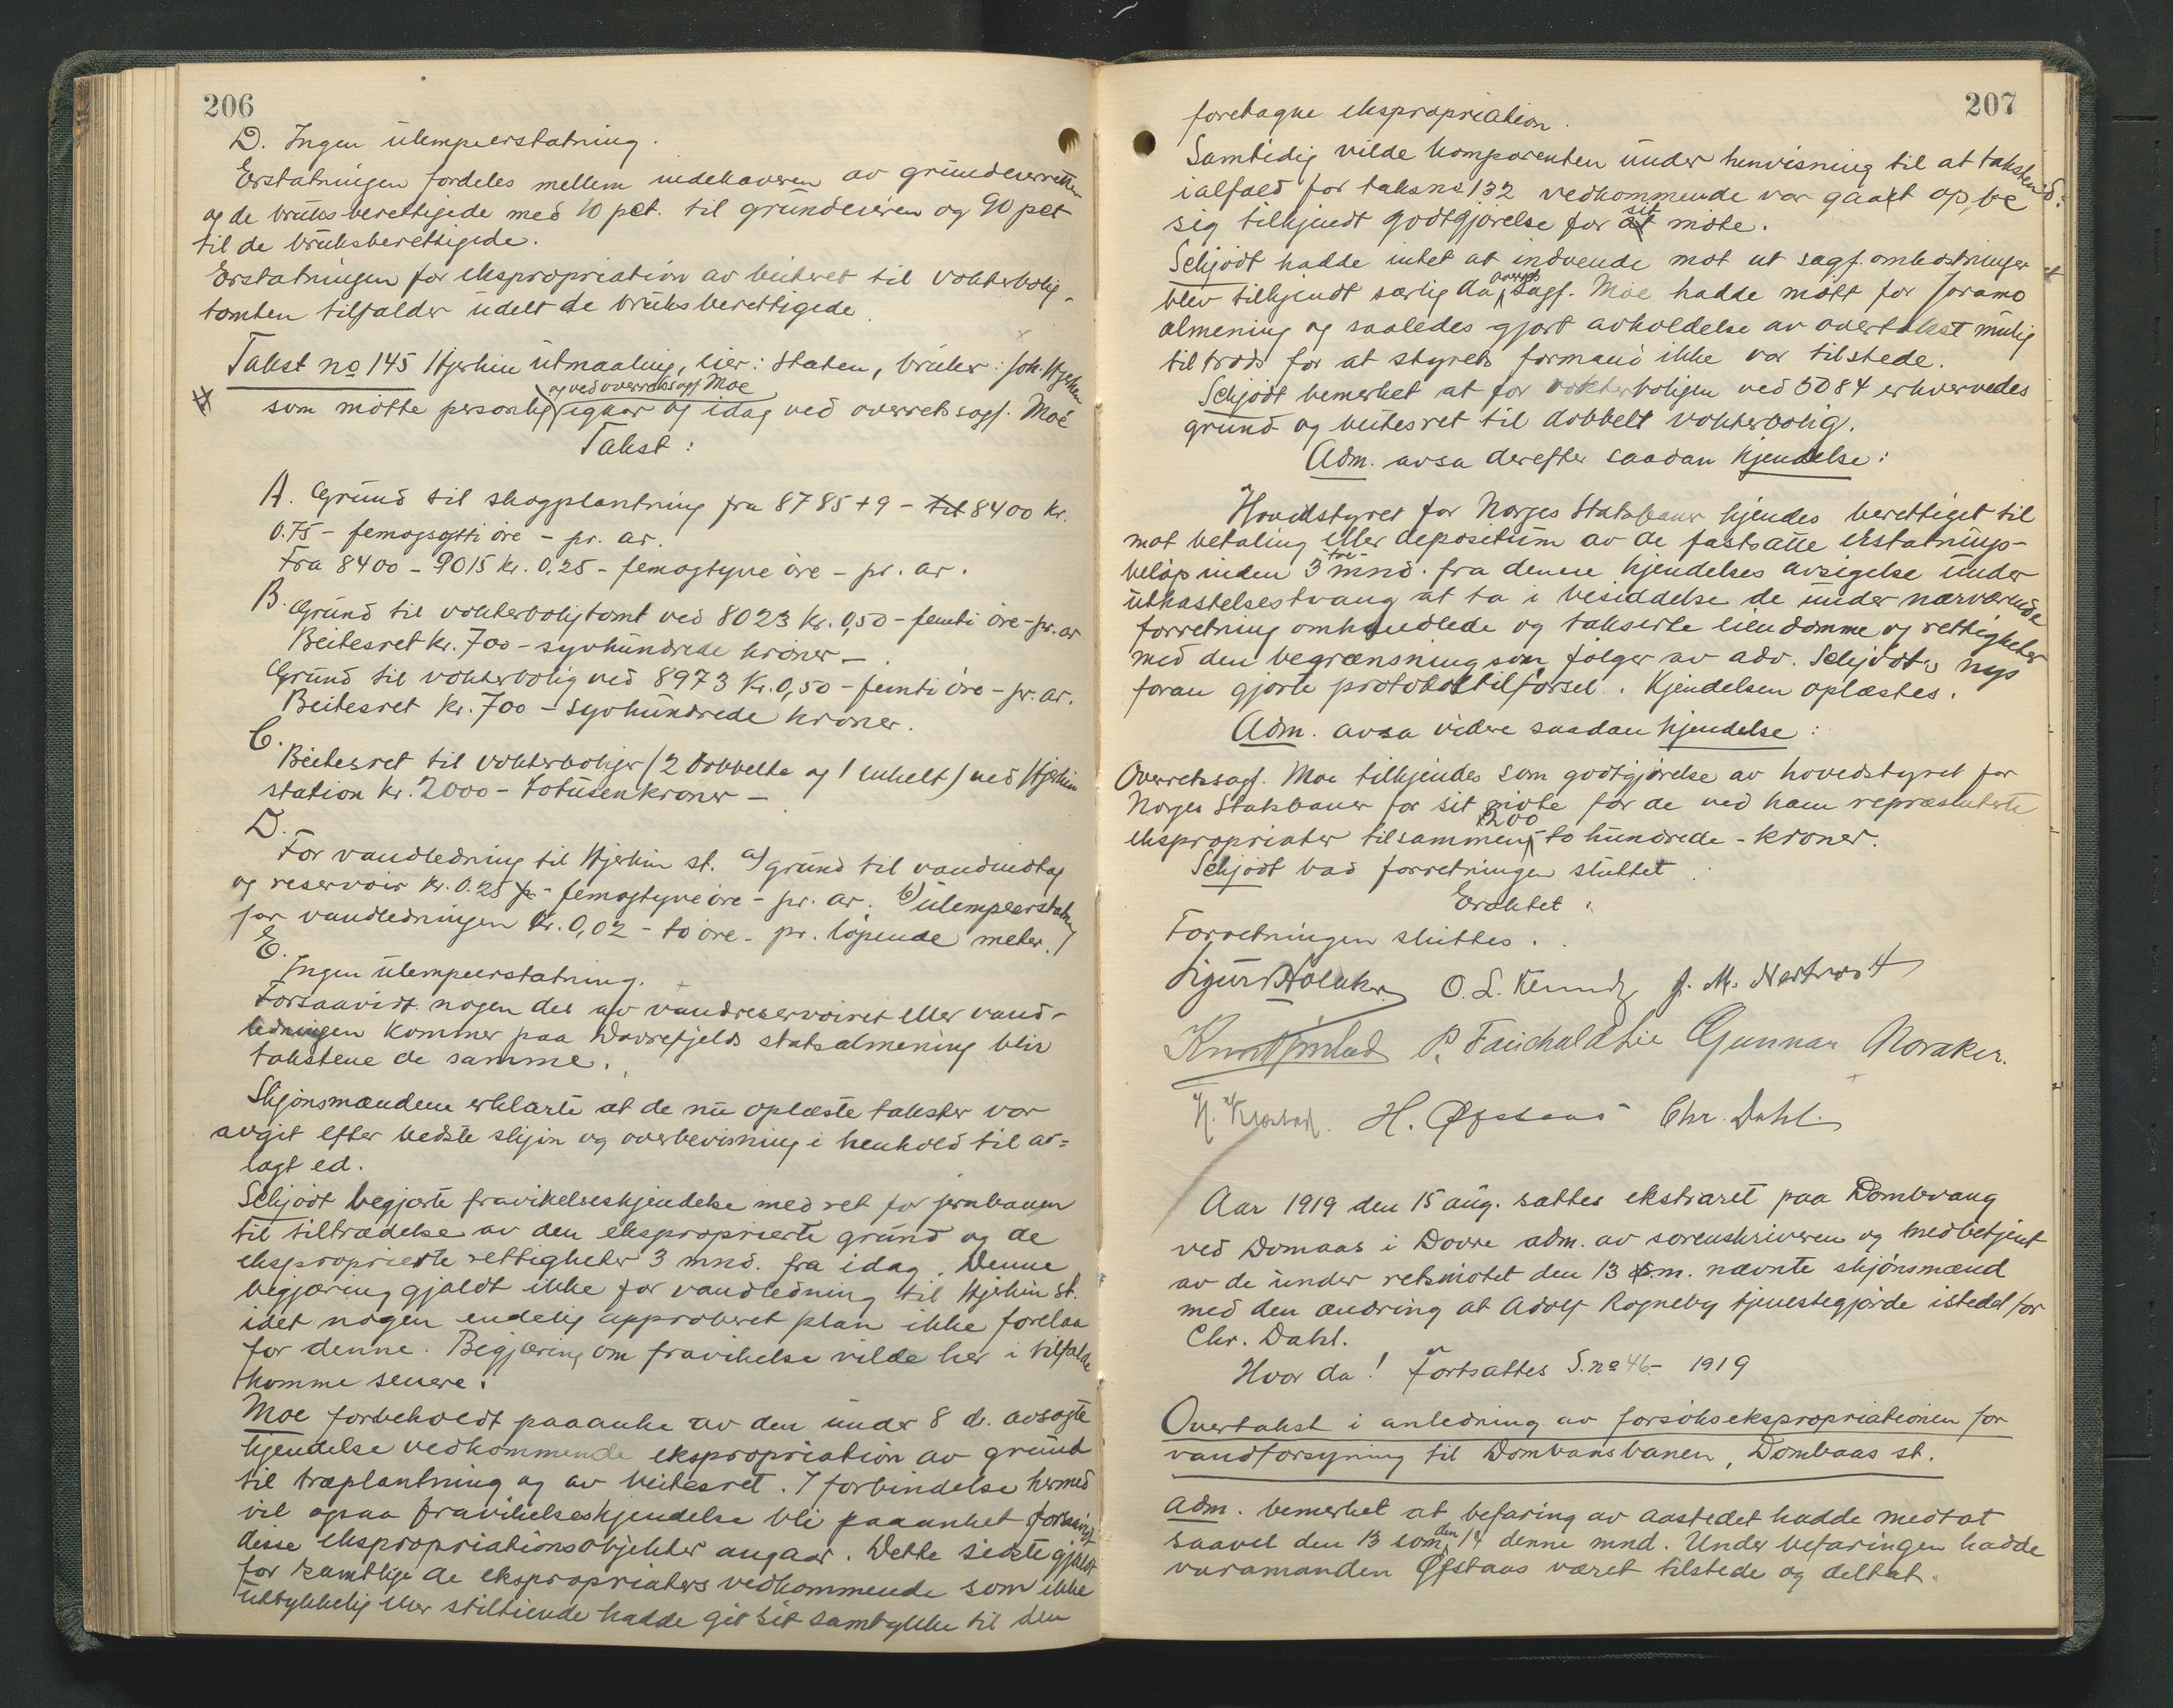 206
D. Ingen ulempeerstatning.
Erstatningen fordeles mellem indehaveren av grundeierretten
og de bruksberettigede med 10 pct. til grundeieren og 90 pct
til de bruksberettigede.
Erstatningen for ekspropriation av beiteret til vokterbolig-
tomten tilfalder udelt de bruksberettigede.
Takst no 145 Hjerkin utmaaling, eier: Staten, bruker: Joh. Hjerkin
og ved overretssagf Moe
som møtte personlig igaar og idag ved overretssagf. Moe
Takst:
A. Grund til skogplantning fra 8785+9 - til 8400 kr.
0.75 - femogsytti øre - pr. ar.
Fra 8400 - 9015 kr. 0,25 - femogtyve øre - pr. ar.
B. Grund til vokterboligtomt ved 8023 kr. 0,50 - femti øre - pr. ar
Beitesret kr. 700 - syvhundrede kroner -.
Grund til vokterbolig ved 8973 Kr. 0,50 - femti øre - pr. ar.
Beitesret kr. 700 - syvhundrede kroner.
C.
Beitesret til vokterboliger (2 dobbelte og 1 enkelt) ved Hjerkin
station kr. 2000 - totusenkroner -
D.
For vandledning til Hjerkin st. a) grund til vandindtag
og reservoir kr. 0.25 - femogtyve øre - pr. ar. b) ulempeerstatn
for vandledningen Kr. 0,02 - to øre - pr. løpende meter.
E.
Ingen ulempeerstatning.
Forsaavidt nogen del av vandreservoiret eller vand-
ledningen kommer paa Dovrefjelds statsalmening blir
takstene de samme.
Skjønsmændene erklærte at de nu oplæste takster var
avgit efter bedste skjøn og overbevisning i henhold til av=
lagt ed.
Schjødt begjærte fravikelseskjendelse med ret for jernbanen
til tiltrædelse av den eksproprierte grund og de
eksproprierte rettigheter 3 mnd. fra idag. Denne
begjæring gjaldt ikke for vandledning til Hjerkin st.
idet nogen endelig approbert plan ikke forelaa
for denne. Begjæring om fravikelse vilde her i tilfælde
komme senere.
Moe forbeholdt paaanke av den under 8 ds. avsagte
kjendelse vedkommende ekspropriation av grund
til træplantning og av beitesret. I forbindelse hermed
vil ogsaa fravikelseskjendelse bli paaanket forsaavidt
disse ekspropriationsobjekter angaar. Dette sidste gjaldt
for samtlige de ekspropriaters vedkommende som ikke
uttrykkelig eller stiltiende hadde git sit samtykke til den
207
foretagne ekspropriation.
Samtidig vilde komparenten under henvisning til at taksten
ialfald for taksne 132 vedkommende var gaat op, be
sig tilkjendt godtgjørelse for sit møte.
Schjødt hadde intet at indvende mot at sagf. omkostninger
blev tilkjendt særlig da overrets sagf. Moe hadde møtt for Joramo
almening og saaledes gjort avholdelse av overtakst mulig
tiltrods for at styrets formand ikke var tilstede.
Schjødt bemerket at for vokterboligen ved 5084 erhvervedes
grund og beitesret til dobbelt vokterbolig.
Adm. avsa derefter saadan kjendelse:
Hovedstyret for Norges Statsbaner kjendes berettiget til
mot betaling eller depositum av de fastsatte erstatnings-
beløp inden 3 -tre- mnd. fra denne kjendelses avsigelse under
utkastelsestvang at ta i besiddelse de under nærværende
forretning omhandlede og takserte eiendomme og rettigheter
med den begrænsning som følger av adv. Schjødts nys
foran gjorte protokoltilførsel. Kjendelsen oplæstes.
Adm. avsa videre saadan kjendelse:
Overretssagf. Moe tilkjendes som godtgjørelse av hovedstyret for
Norges Statsbaner for sit møte for de ved ham repræsenterte
ekspropriater tilsammen 200 - to hundrede - kroner.
Schjødt bad forretningen sluttet.
Eraktet:
Forretningen sluttes.
O. L. J. M.
P. Gunnar Moraker.
H. H. Øfstaas Chr. Dahl.
Aar 1919 den 15 aug. sattes ekstraret paa Dombvang
ved Domaas i Dovre adm. av sorenskriveren og medbetjent
av de under retsmøtet den 13 ds. m. nævnte skjønsmænd
med den ændring at Adolf Rogneby tjenestegjorde istedet for
Chr. Dahl.
Hvor da! Fortsattes S. no 46 - 1919
Overtakst i anledning av forsøksekspropriationen for
vandforsyning til Dombaasbanen, Dombaas st.
Adm. bemerket at befaring av aastedet hadde medtat
saavel den 13 som den 14 denne mnd. Under befaringen hadde
varamanden Øfstaas været tilstede og deltat.